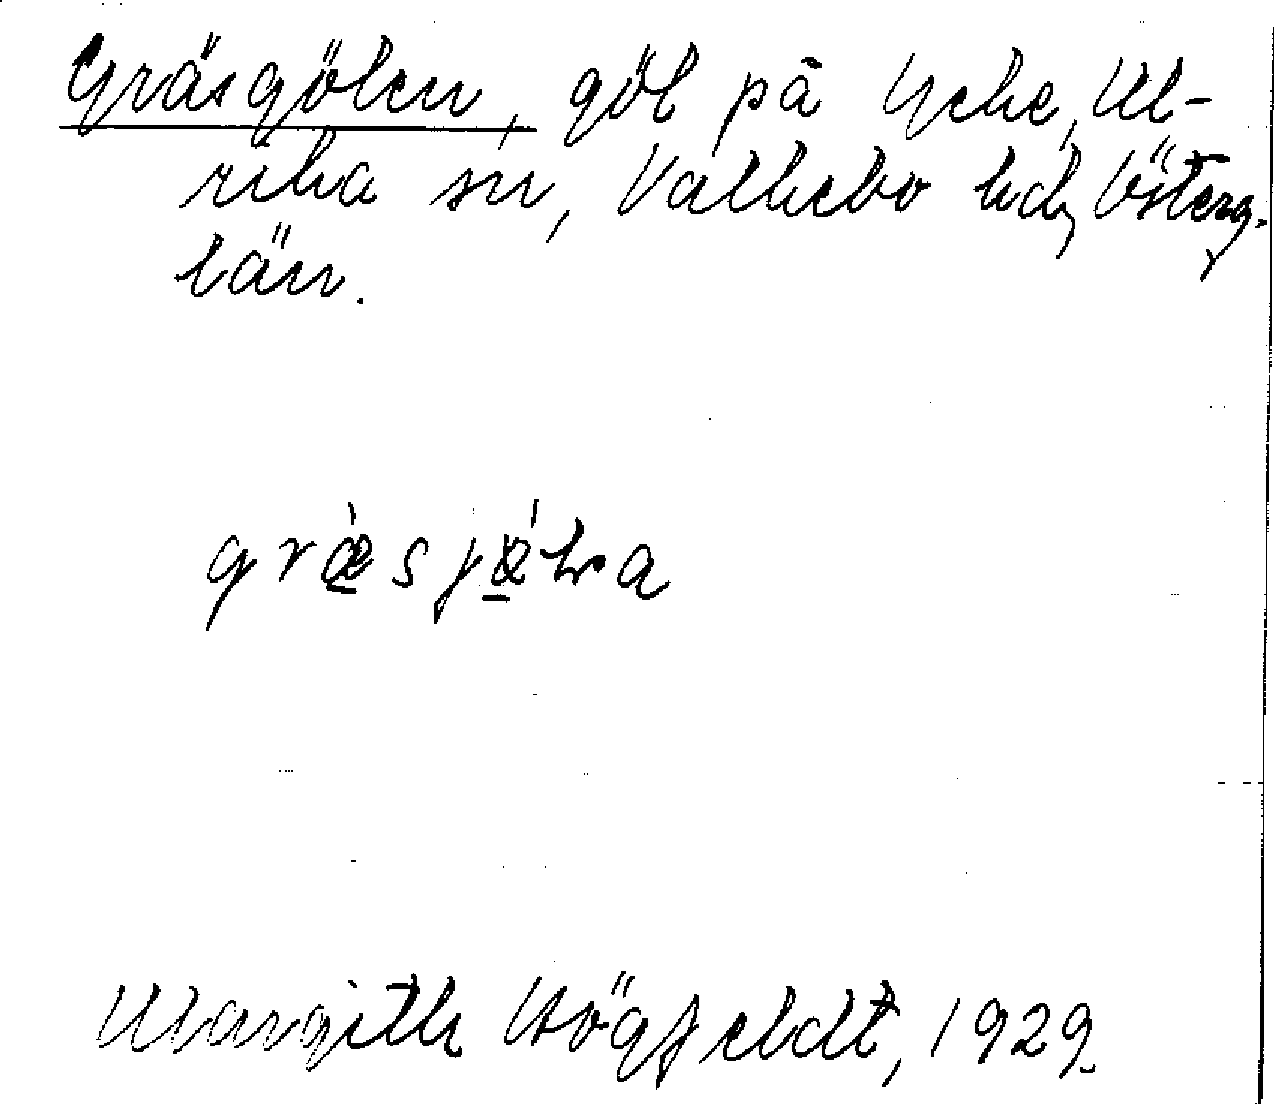 Gräsgölen, göl på Yche, Ul-
rika sn, Valkebo hd, Österg.
län.
græsjæ̀lna
Margith Högfeldt, 1929.